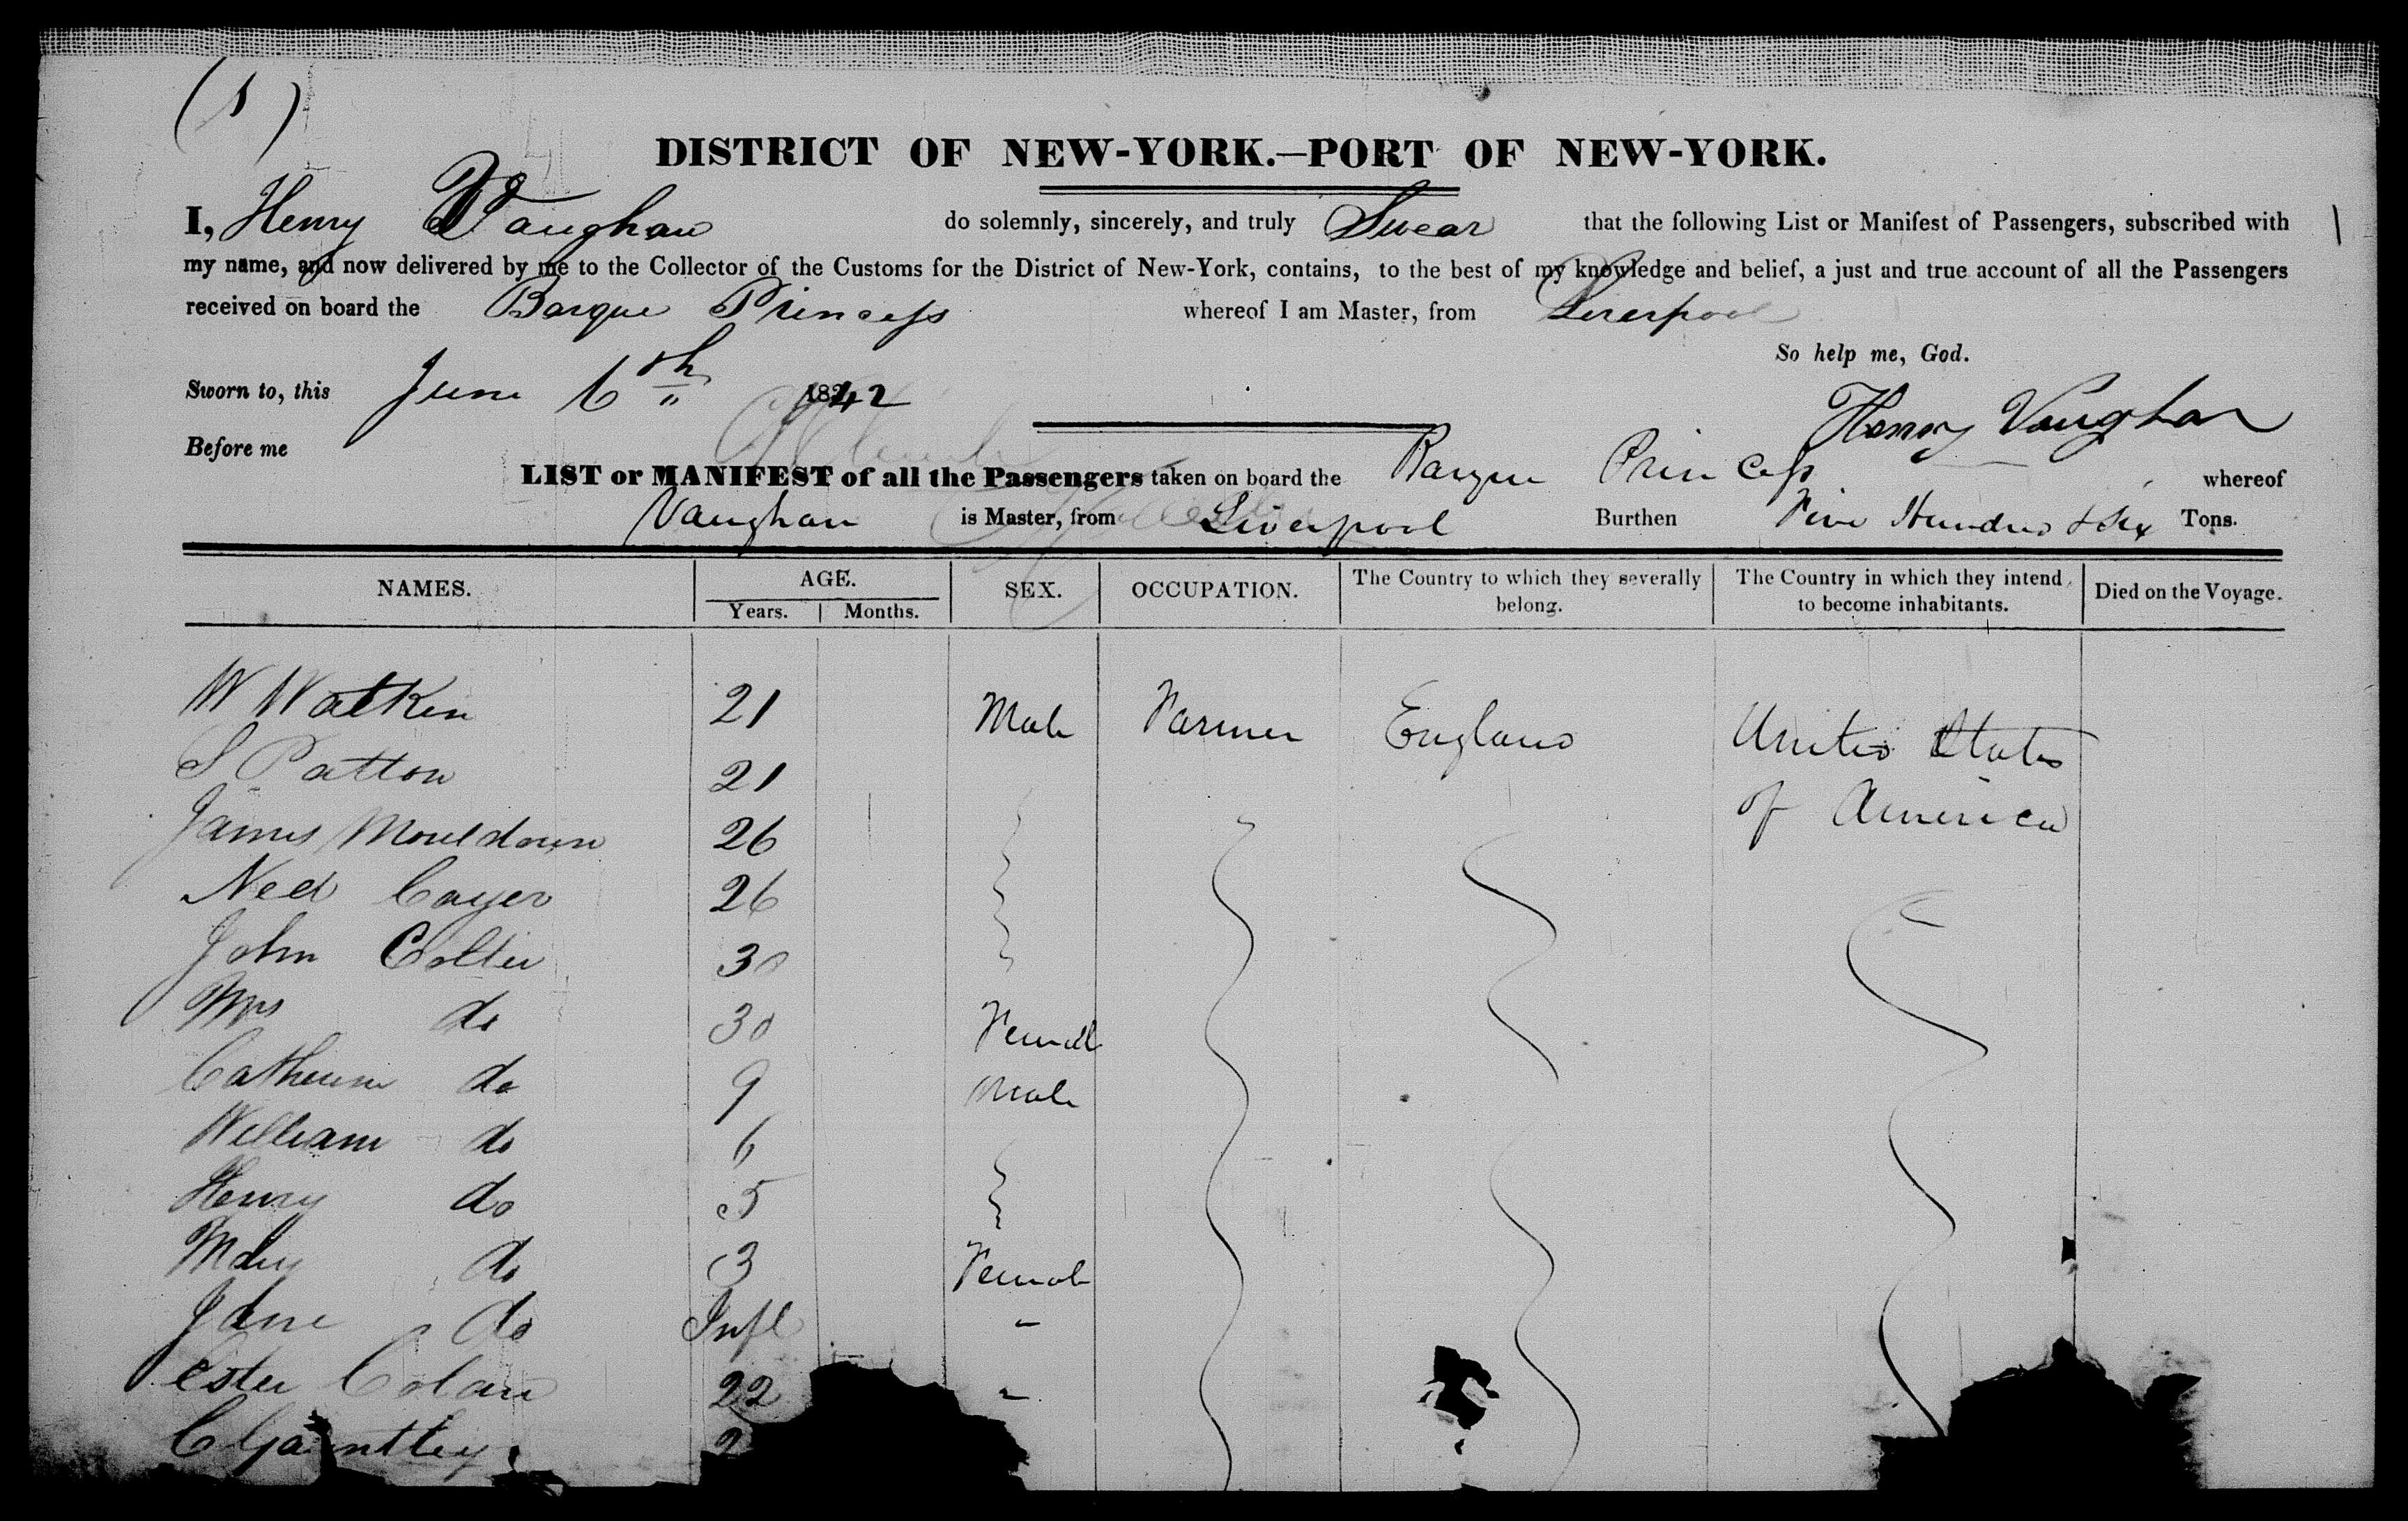 (1)
DISTRICT OF NEW-YORK.—PORT OF NEW-YORK.
I, Henry Vaughan do solemnly, sincerely, and truly Swear that the following List or Manifest of Passengers, subscribed with
my name, and now delivered by me to the Collector of the Customs for the District of New-York, contains, to the best of my knowledge and belief, a just and true account of all the Passengers
received on board the Barque Princess whereof I am Master, from Liverpool
So help me, God.
Sworn to, this June 6th 1842
Henry Vaughan
Before me
LIST or MANIFEST of all the Passengers taken on board the Barque Princess whereof
Vaughan is Master, from Liverpool Burthen Five Hundred & Six Tons.
NAMES. AGE. SEX. OCCUPATION. The Country to which they severally belong. The Country in which they intend to become inhabitants. Died on the Voyage.
Years. Months.
W Watkin 21 Male Farmer England United States
S Patton 21 of America
James 26
Ned 26
John Colter 30
Mrs do 30 Female
Catherine do 9 Male
William do 6
Henry do 5
Mary do 3 Female
Jane do Inft "
Ester Colan 22 "
C Gauntley 2